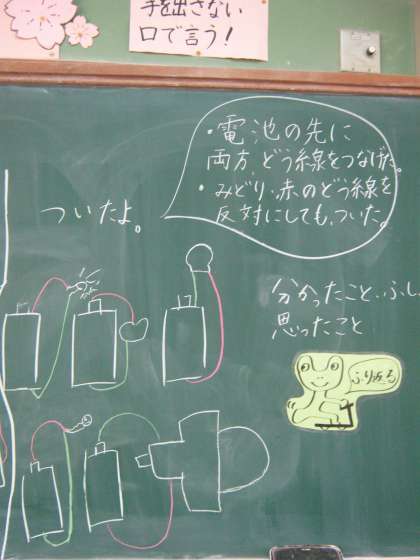 手を出さない
口で言う!
・電池の先に
両方、どう線をつなげた。
・みどり、赤のどう線を
反対にしても、ついた。
ついたよ。
分かったこと、ふし
思ったこと
ふりかえる